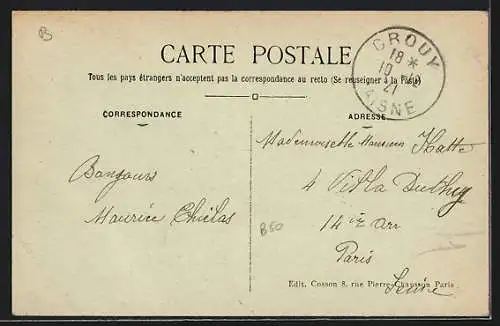 B
CARTE POSTALE
Tous les pays étrangers n'acceptent pas la correspondance au recto (Se renseigner à la Poste)
CROUY
18 *
10
21
AISNE
CORRESPONDANCE
ADRESSE
Mademoiselle
4 Villa Duthy
14 ième Arr
Paris
Seine
Bonjours
Maurice
B50
Edit. Cosson 8, rue Pierre-Chausson Paris